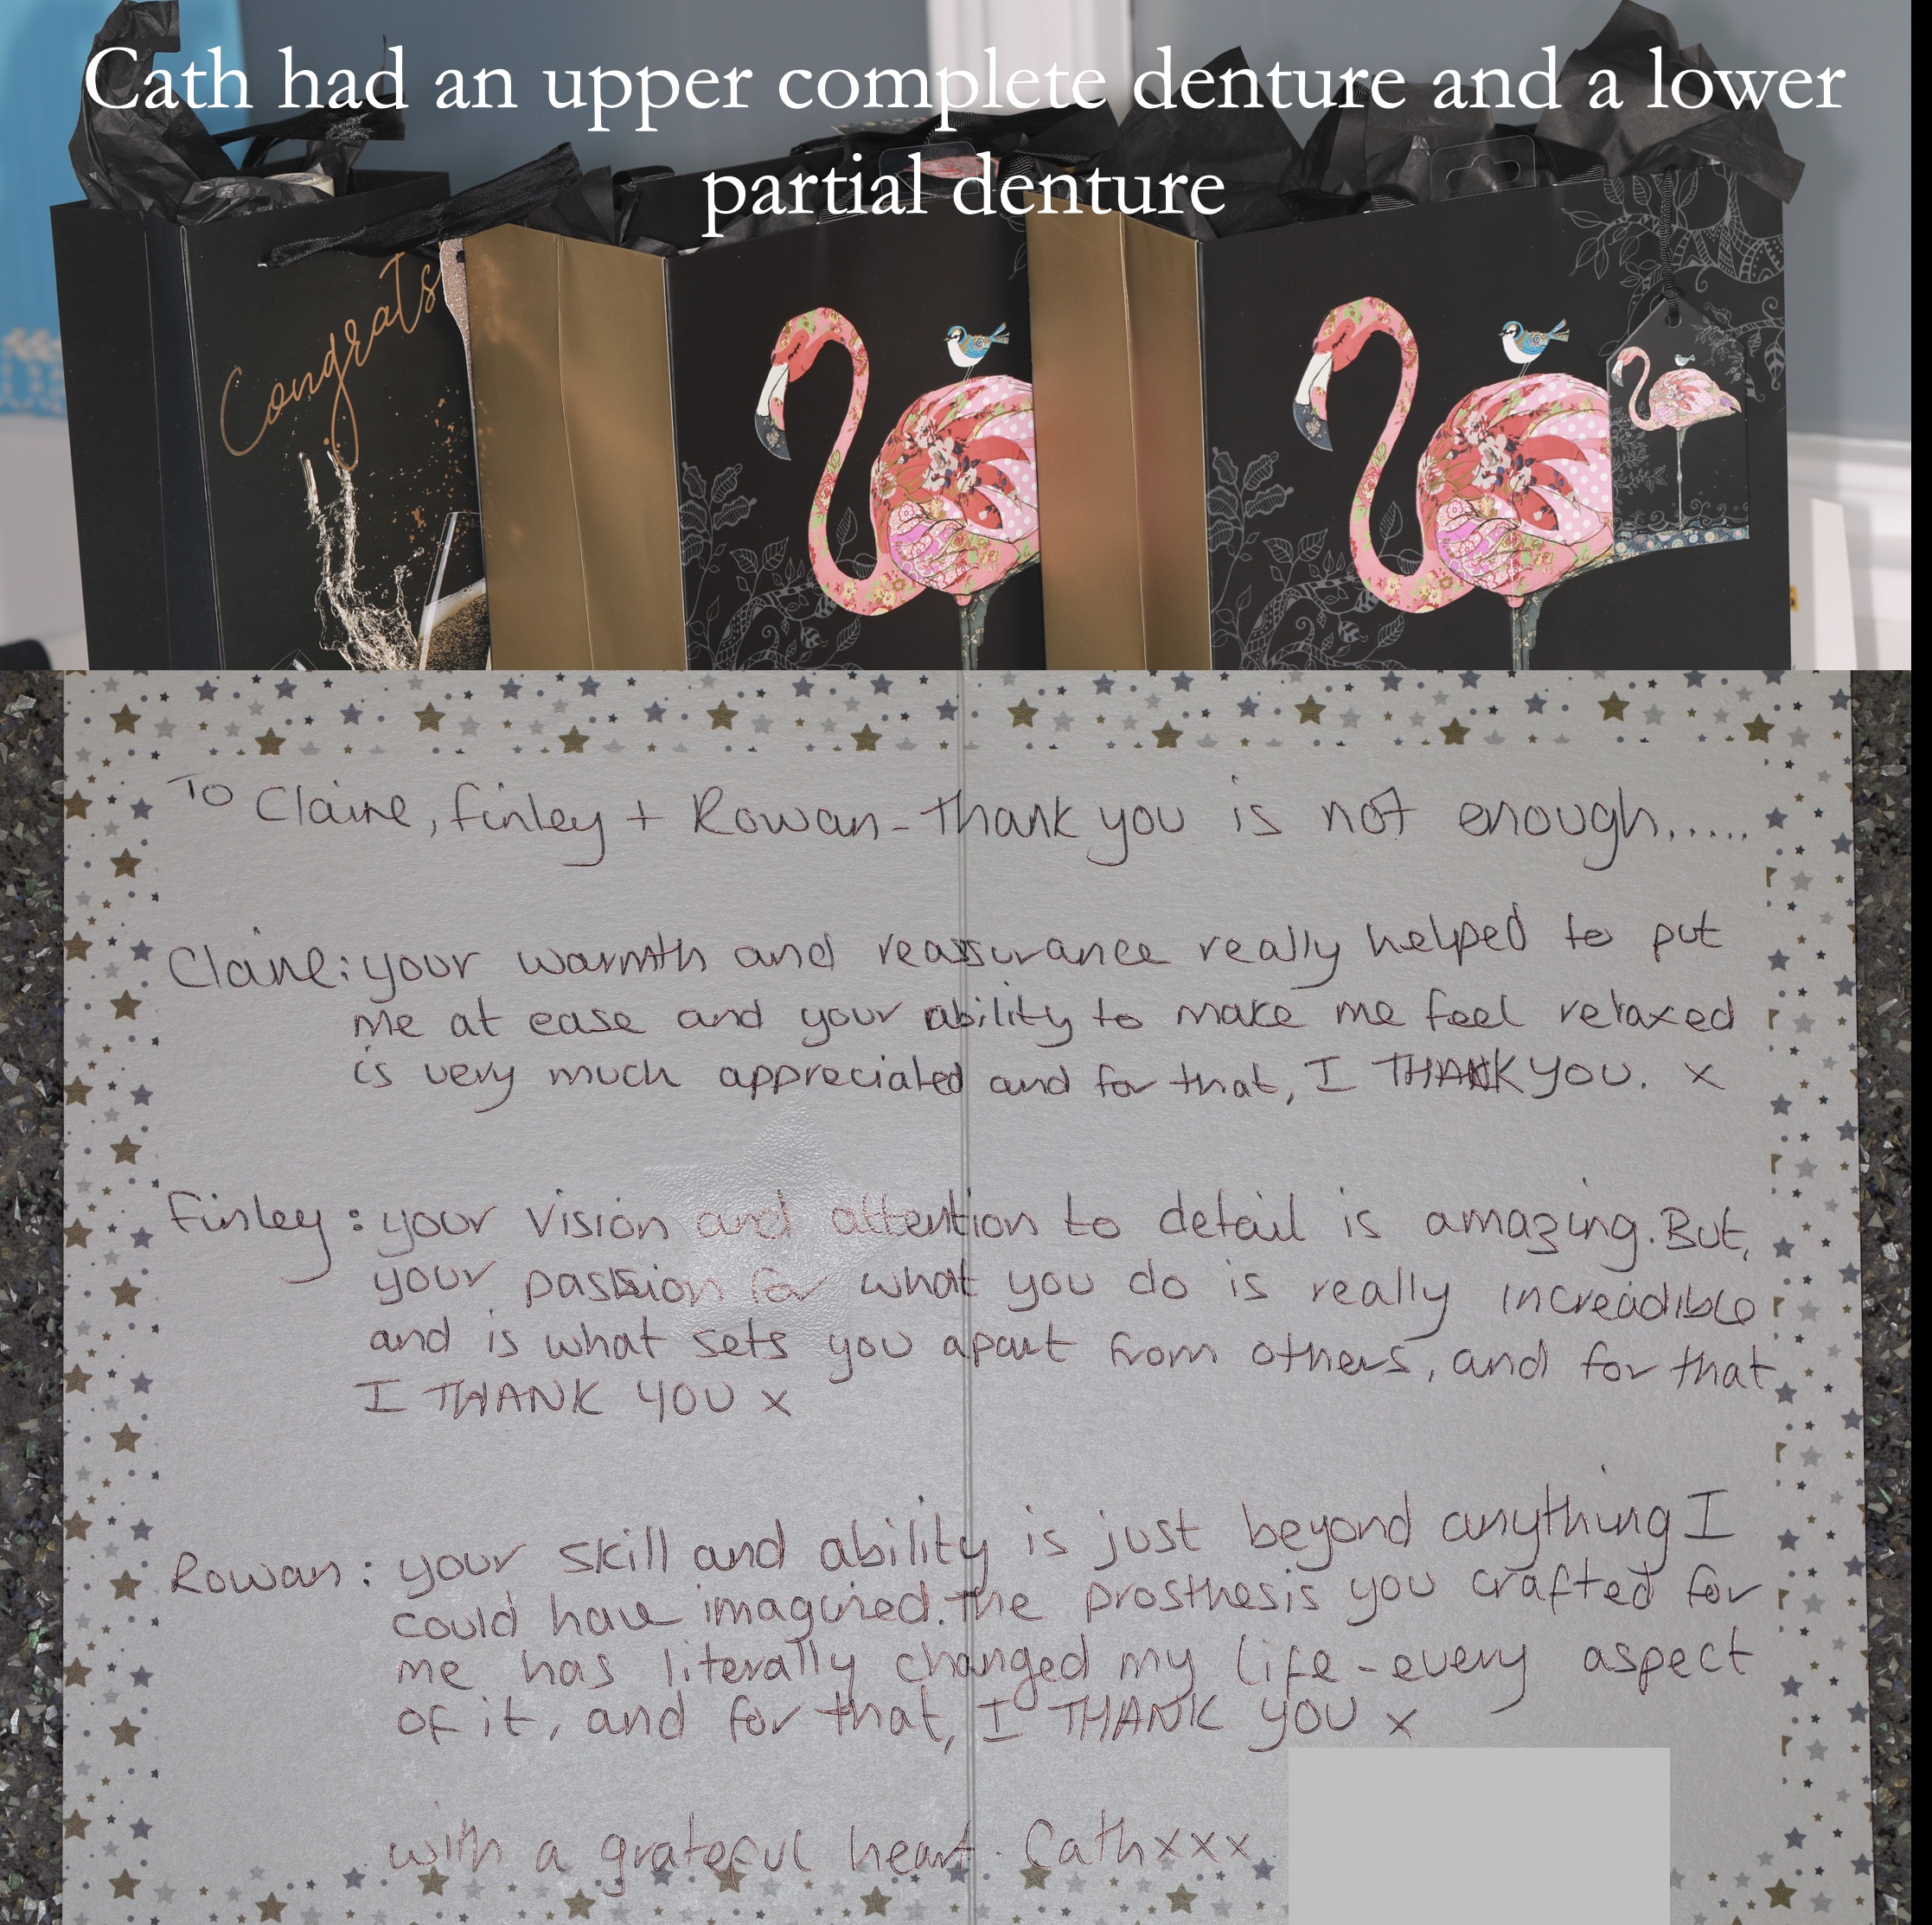 Cath had an upper complete denture and a lower
partial denture
Congrats
To Claire, Finley + Rowan - Thank you is not enough.....
Claire: your warmth and reassurance really helped to put
me at ease and your ability to make me feel relaxed
is very much appreciated and for that, I THANK YOU. x
Finley: your vision and attention to detail is amazing. But,
your passion for what you do is really increadible
and is what sets you apart from others, and for that
I THANK YOU x
Rowan: your skill and ability is just beyond anything I
could have imagined. The prosthesis you crafted for
me has literally changed my life - every aspect
of it, and for that, I THANK YOU x
with a grateful heart. Cath xxx